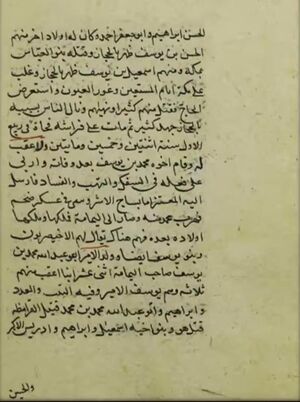 الحسن ابراهيم وابو جعفر احمد وكان له اولاد اخر منهم
الحسن بن يوسف ظهر بالحجاز وقتله بنو العباس
بمكة ومنهم اسمعيل بن يوسف ظهر بالحجاز وغلب
على مكة ايام المستعين وغور العيون واستعرض
الحاج فقتل منهم كثيرا ونهبهم ونال الناس بسببه
بالحجاز جهد كثير ثم مات على فراشه فجاة في ربيع
الاول سنة اثنتين وخمسين ومايتين ولا عقب
له وقام اخوه محمد بن يوسف بعد وفاته واربى
على فعله في السفك والنهب والفساد فارسل
اليه المعتز ابا الساج الاشروسي في عسكر ضخم
فهرب محمد منه وصار الى اليمامة فملكها وملكها
اولاده بعده فهم هناك يقال لهم الاخيضريون
وبنو يوسف ايضا وولد الامير ابو عبد الله محمد بن
يوسف صاحب اليمامة اثنى عشر ابنا اعقب منهم
ثلاثة وهم يوسف الامير وفيه البيت والعدد
وابراهيم وابو عبد الله محمد بن محمد قتيل القرامطة
قتل هو وبنو اخيه اسمعيل وابراهيم وادريس الاكبر
والحسن